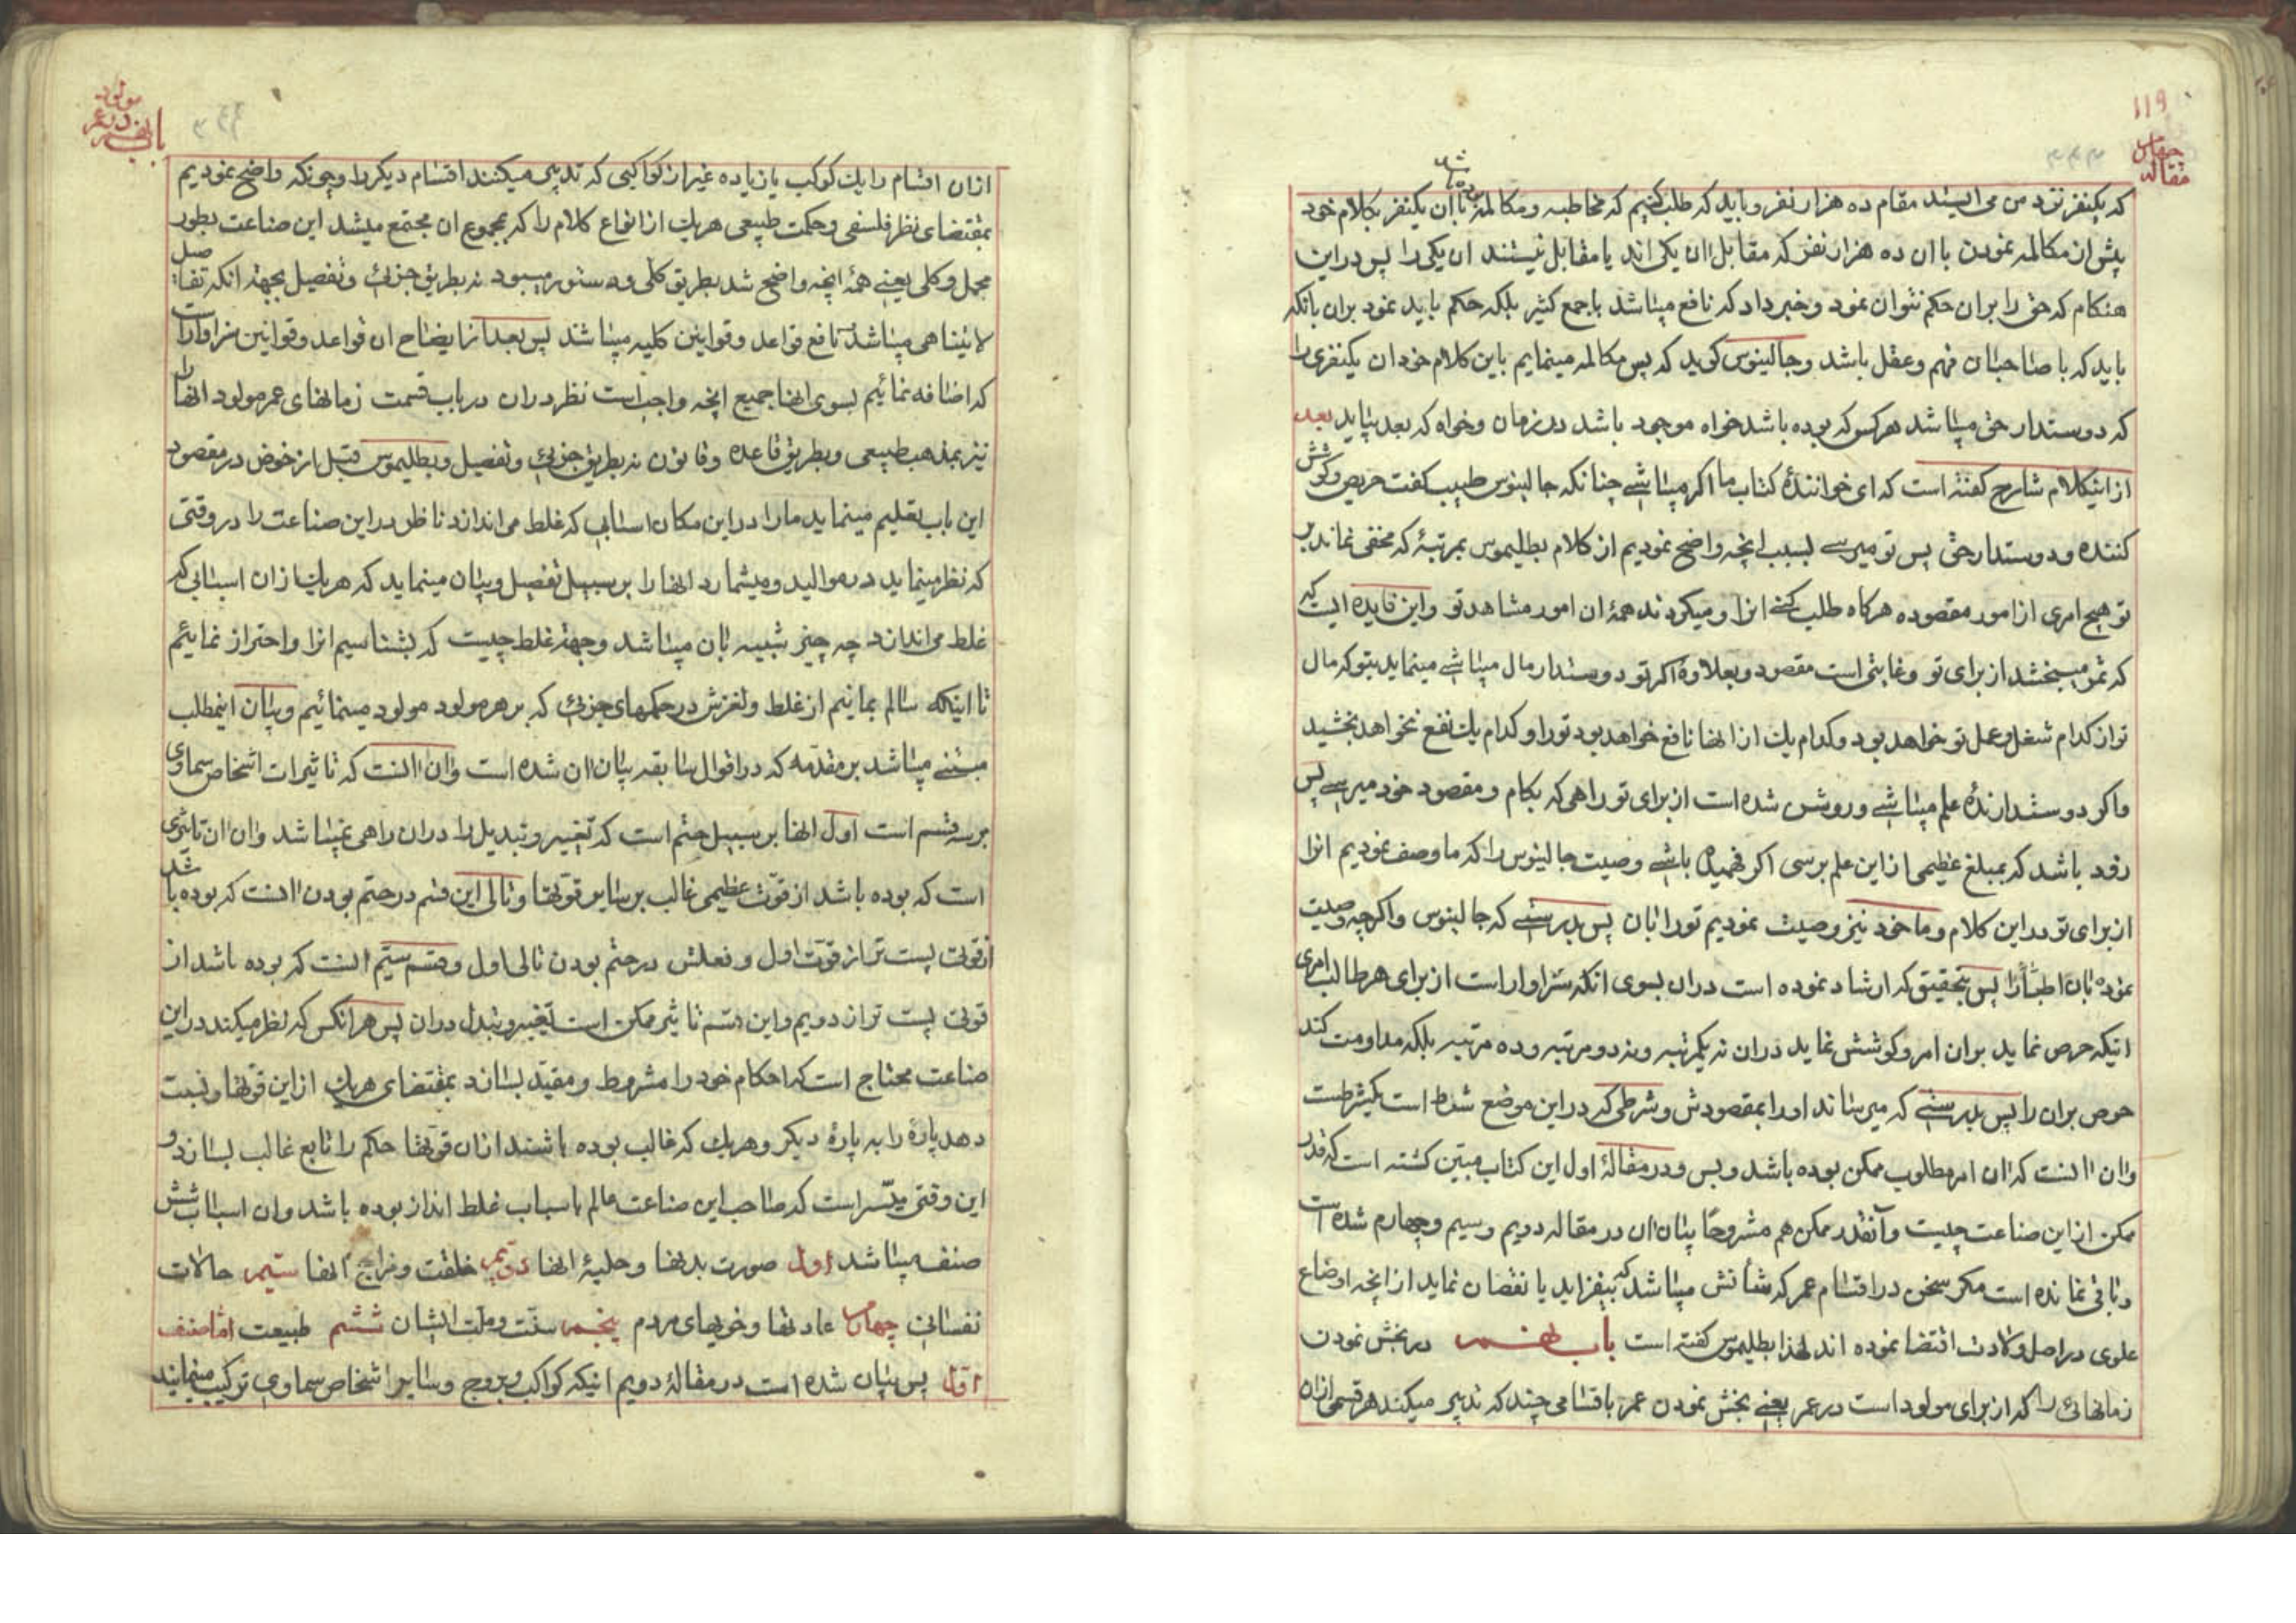 ۱۱۹
مقاله چهارم
۳۴۳
که یکنفر نزد من می ایستد مقام ده هزار نفر و باید که طلب کنیم که مخاطبه و مکالمه با آن یکنفر بکلام خود
پیش از مکالمه نمودن با ان ده هزار نفر که مقابل ان یکی اند یا مقابل نیستند ان یکی را پس در این
هنکام که حق را بران حکم نتوان نمود و خبر داد که نافع میباشد با جمع کثیر بلکه حکم باید نمود بران بانکه
باید که با صاحبان فهم و عقل باشد و جالینوس کوید که پس مکالمه مینمایم باین کلام خود ان یکنفری را
که دوستدار حق میباشد هر کس که بوده باشد خواه موجود باشد در زمان و خواه که بعد بیاید بعد
از اینکلام شارح کفته است که ای خوانندۀ کتاب ما اکر میباشے چنانکه جالینوس طبیب کفت حریص و کوشش
کننده و دوستدار حق پس تو میرسے بسبب انچه واضح نمودیم از کلام بطلیموس بمرتبۀ که مخفی نماند بر
تو هیچ امری از امور مقصوده هرکاه طلب کنے انرا و میکردند همۀ ان امور مشاهد تو و این فایده ایست که
که ثمر میبخشد از برای تو و غایتی است مقصود و بعلاوه اکر تو دوستدار مال میباشے مینماید بتو که مال
تو از کدام شغل و عمل تو خواهد بود و کدام یک از انها نافع خواهد بود تو را و کدام یک نفع نخواهد بخشید
و اکر دوستدارندۀ علم میباشے و روشن شده است از برای تو راهی که بکام و مقصود خود میرسے پس
زود باشد که بمبلغ عظیمی از این علم برسی اکر فهمیده باشے وصیت جالینوس را که ما وصف نمودیم انرا
از برای تو در این کلام و ما خود نیز وصیت نمودیم تو را بان پس بدرستے که جالینوس و اکرچه وصیت
نموده بان اطبا را پس بتحقیق که ارشاد نموده است دران بسوی انکه سزاوار است از برای هر طالب امری
اینکه حرص نماید بران امر و کوشش نماید دران نه یکمرتبه و نه دو مرتبه و ده مرتبه بلکه مداومت کند
حرص بران را پس بدرستے که میرساند او را بمقصودش و شرطی که در این موضع شرط است یکشرطست
وان انست که ان امر مطلوب ممکن بوده باشد و بس و در مقالۀ اول این کتاب مبین کشته است که قدر
ممکن از این صناعت چیست و آنقدر ممکن هم مشروحا بیان ان در مقاله دویم و سیم و چهارم شده است
و باقی نمانده است مکر سخن در اقسام عمر که شأنش میباشد که بیفزاید یا نقصان نماید از انچه اوضاع
علوی در اصل ولادت اقتضا نموده اند لهذا بطلیموس کفته است باب نهم در بخش نمودن
زمانهائی را که از برای مولود است در عمر یعنے بخش نمودن عمر باقسامی چند که تدبیر میکند هر قسمی ازان
باب نهم در عمر مولود
۳۴۴
ازان اقسام را یک کوکب یا زیاده غیر از کواکبی که تدبیر میکنند اقسام دیکر را و چونکه واضح نمودیم
بمقتضای نظر فلسفی و حکمت طبیعی هر یک از انواع کلام را که بمجموع ان مجتمع میشد این صناعت بطور
مجمل و کلی یعنے همۀ انچه واضح شد بطریق کلی و دستور میبود نه بطریق جزئی و تفصیل بجهة انکه تفاصیل
لا یتناهی میباشد نافع قواعد و قوانین کلیه میباشند پس بعد از ایضاح ان قواعد و قوانین سزاوار است
که اضافه نمائیم بسوی انها جمیع انچه واجب است نظر دران در باب قسمت زمانهای عمر مولود انها را
نیز بمذهب طبیعی و بطریق قاعده و قانون نه بطریق جزئی و تفصیل و بطلیموس قبل از خوض در مقصود
این باب تعلیم مینماید ما را در این مکان اسبابی که غلط می اندازد ناظر در این صناعت را در وقتی
که نظر مینماید در موالید و میشمارد انها را بر سبیل تفصیل و بیان مینماید که هر یک ازان اسبابی که
غلط می اندازد چه چیز شبیه بان میباشد و جهة غلط چیست که بشناسیم انرا و احتراز نمائیم
تا اینکه سالم بمانیم از غلط و لغزش در حکمهای جزئی که بر هر مولود مولود مینمائیم و بیان اینمطلب
مبنے میباشد بر مقدمه که در اقوال سابقه بیان ان شده است وان انست که تاثیرات اشخاص سماوی
بر سه قسم است اول انها بر سبیل حتم است که تغییر و تبدیل را دران راهی نمیباشد وان ان تاثیری
است که بوده باشد از قوت عظیمی غالب بر سایر قوتها و تالی این قسم در حتم بودن انست که بوده باشد
از قوتی پست تر از قوت اول و فعلش در حتم بودن تالی اول و قسم سیم انست که بوده باشد از
قوتی پست تر از دویم و این قسم تاثیر ممکن است تغییر و تبدل دران پس هر انکس که نظر میکند در این
صناعت محتاج است که احکام خود را مشروط و مقید بسازد بمقتضای هر یک از این قوتها و نسبت
دهد پارۀ را به پارۀ دیکر و هر یک که غالب بوده باشند ازان قوتها حکم را تابع غالب بسازد و
این وقتی میسّر است که صاحب این صناعت عالم باسباب غلط انداز بوده باشد وان اسباب شش
صنف میباشد اول صورت بدنها و حلیۀ انها دویم خلقت و مزاج انها سیم حالات
نفسانی چهارم عادتها و خویهای مردم پنجم سنّت و ملت ایشان ششم طبیعت اما صنف
اول پس بیان شده است در مقالۀ دویم اینکه کواکب و بروج و سایر اشخاص سماوی ترکیب مینمایند